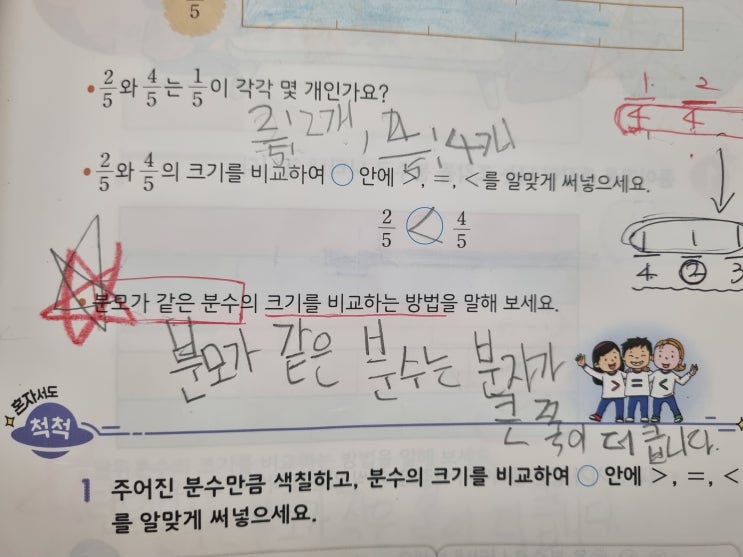 5
• 2/5와 4/5는 1/5이 각각 몇 개인가요?
2/5: 2개, 4/5: 4개
1/4 2/4
• 2/5와 4/5의 크기를 비교하여 ○ 안에 >, =, <를 알맞게 써넣으세요.
2/5 < 4/5
1/4 1/2 1/3
• 분모가 같은 분수의 크기를 비교하는 방법을 말해 보세요.
분모가 같은 분수는 분자가
큰 쪽이 더 큽니다.
> = <
혼자서도
척척
1 주어진 분수만큼 색칠하고, 분수의 크기를 비교하여 ○ 안에 >, =, <
를 알맞게 써넣으세요.